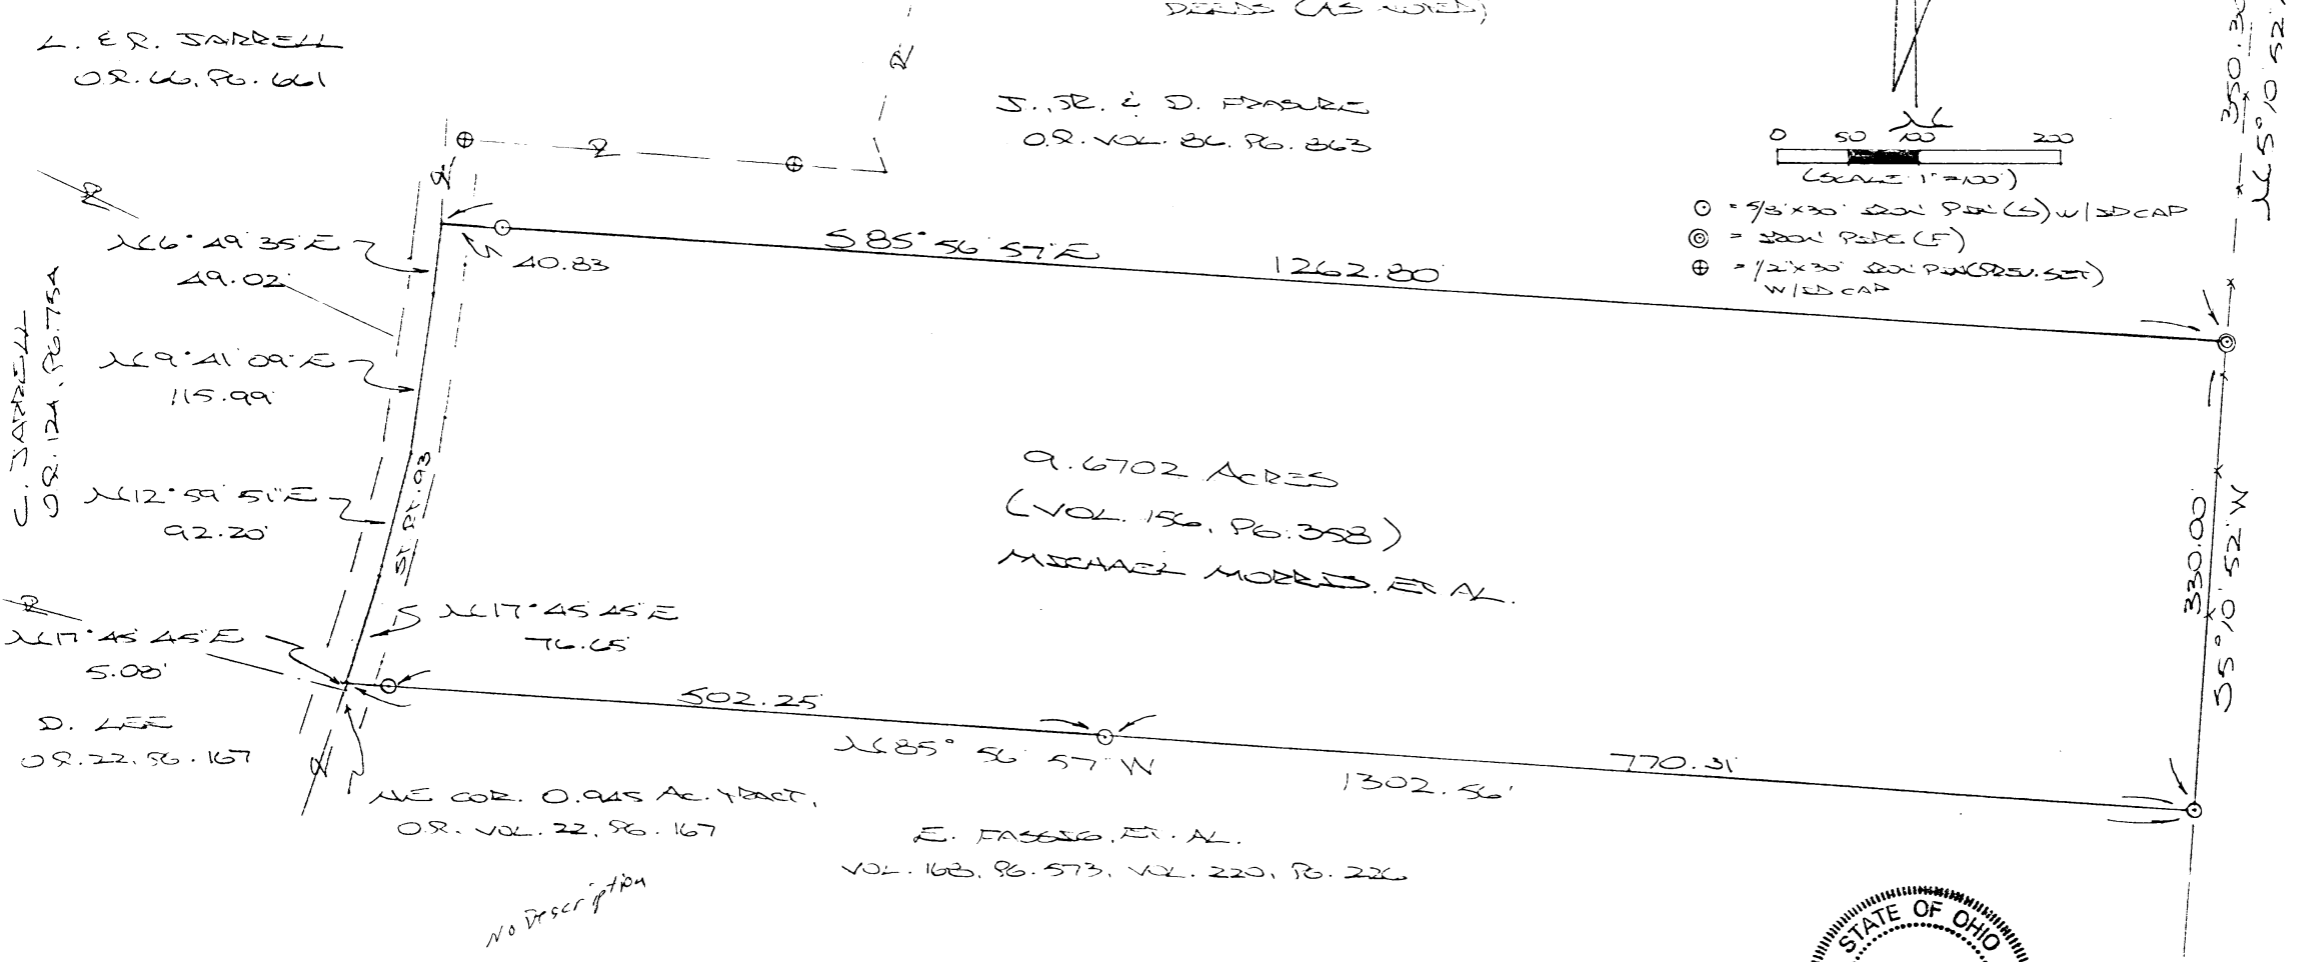 DEEDS (AS NOTED)
L. & R. JARRELL
O.R. 66, PG. 661
J., JR. & D. FRASURE
O.R. VOL. 86, PG. 863
350.30
N 5° 10' 52"
0 50 100 200
(SCALE: 1"=100')
⊙ = 5/8"x30" IRON PIN (S) W/ID CAP
◎ = IRON PIPE (F)
⊕ = 1/2"x30" IRON PIN (PREV. SET)
W/ID CAP
N 6° 49' 35" E
49.02'
40.83
S 85° 56' 57" E
1262.80'
C. JARRELL
O.R. 124, PG. 754
N 9° 41' 09" E
115.99'
N 12° 59' 51" E
92.20'
ST. RT. 93
9.6702 ACRES
(VOL. 156, PG. 358)
MICHAEL MORRIS, ET AL.
330.00'
S 5° 10' 52" W
N 17° 45' 45" E
76.65'
N 17° 45' 45" E
5.08'
502.25'
N 85° 56' 57" W
1302.56'
770.31'
D. LEE
O.R. 22, PG. 167
NE COR. 0.945 AC. TRACT,
O.R. VOL. 22, PG. 167
E. FASSIG, ET. AL.
VOL. 168, PG. 573, VOL. 220, PG. 226
No Description
STATE OF OHIO